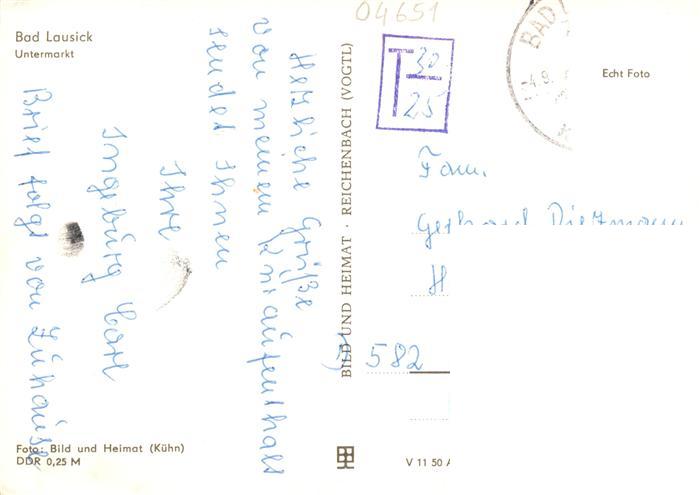 04651
Bad Lausick
Untermarkt
Herzliche Grüße
von meinem Kuraufenthalt
sendet Ihnen
Ihre
Ingeburg
Brief folgt von Zuhause
Foto: Bild und Heimat (Kühn)
DDR 0,25 M
BILD UND HEIMAT · REICHENBACH (VOGTL)
V 11 50 A
T 30
25
BAD
4.9.
Echt Foto
Fam.
Gerhard
H
582